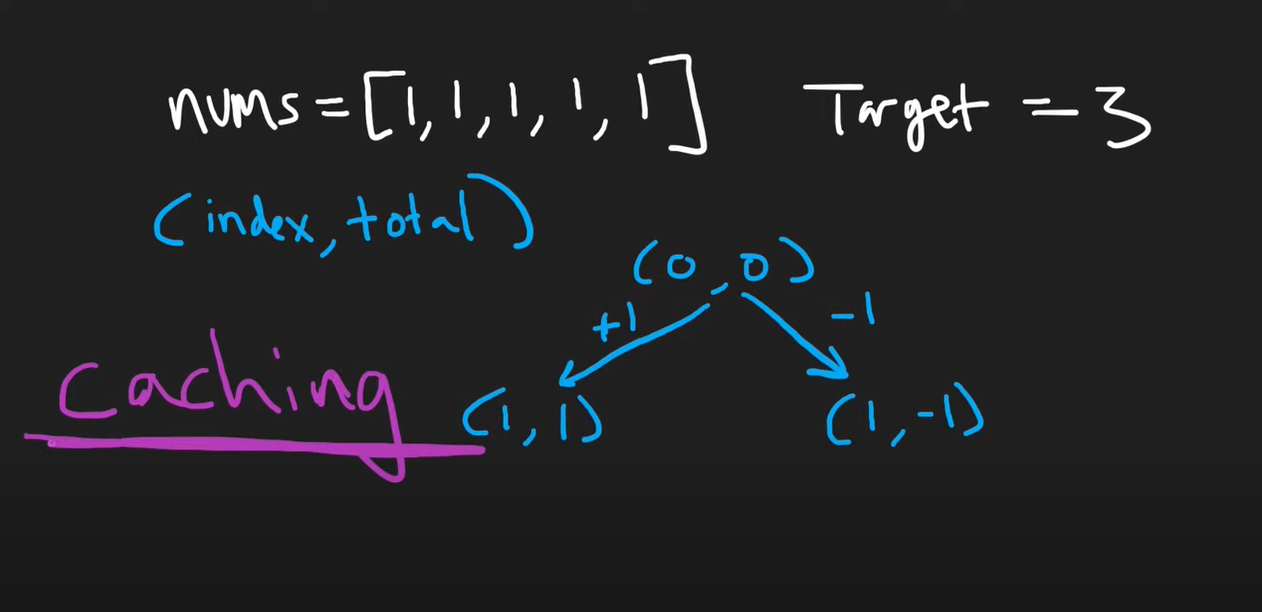 nums = [1, 1, 1, 1, 1] Target = 3
(index, total)
(0, 0)
+1 -1
caching
(1, 1) (1, -1)